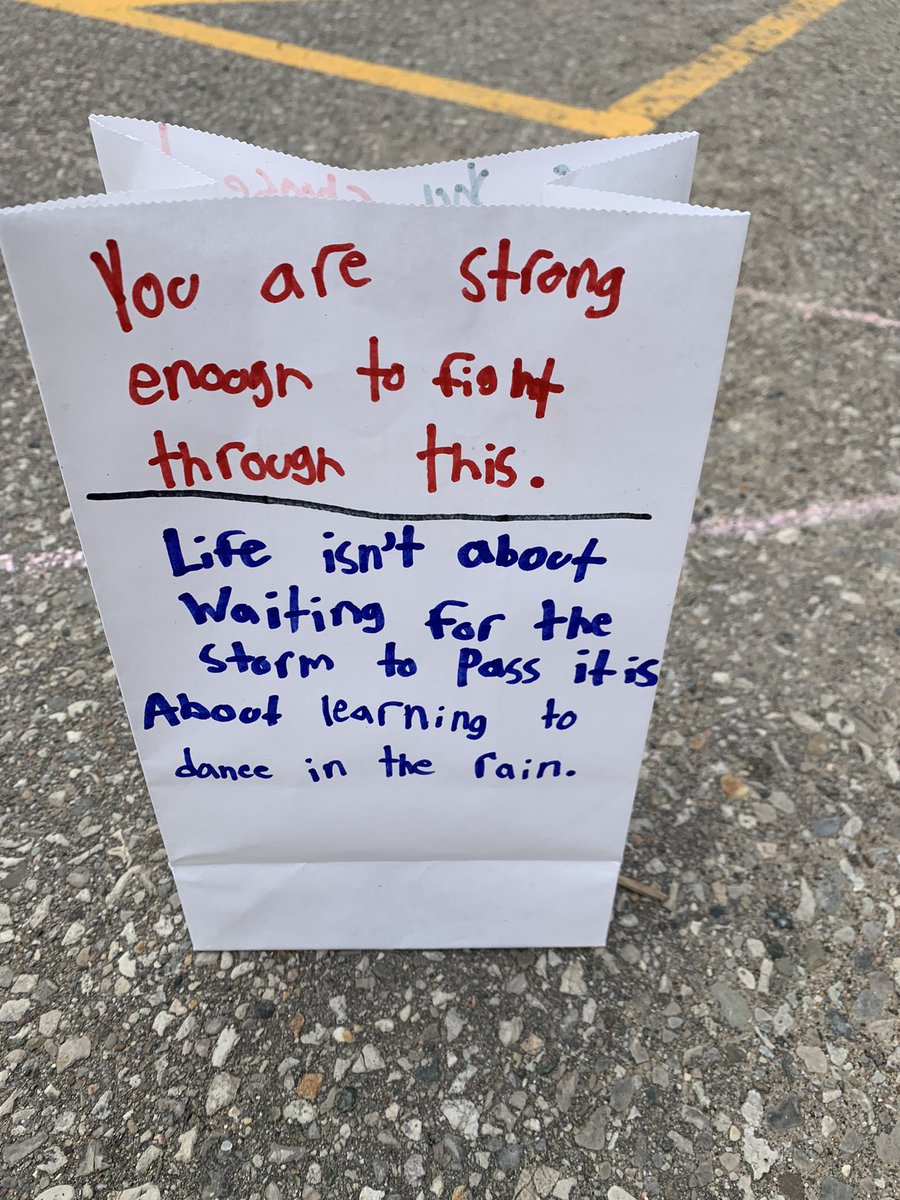 You are strong
enough to fight
through this.
Life isn't about
Waiting for the
storm to Pass it is
About learning to
dance in the rain.